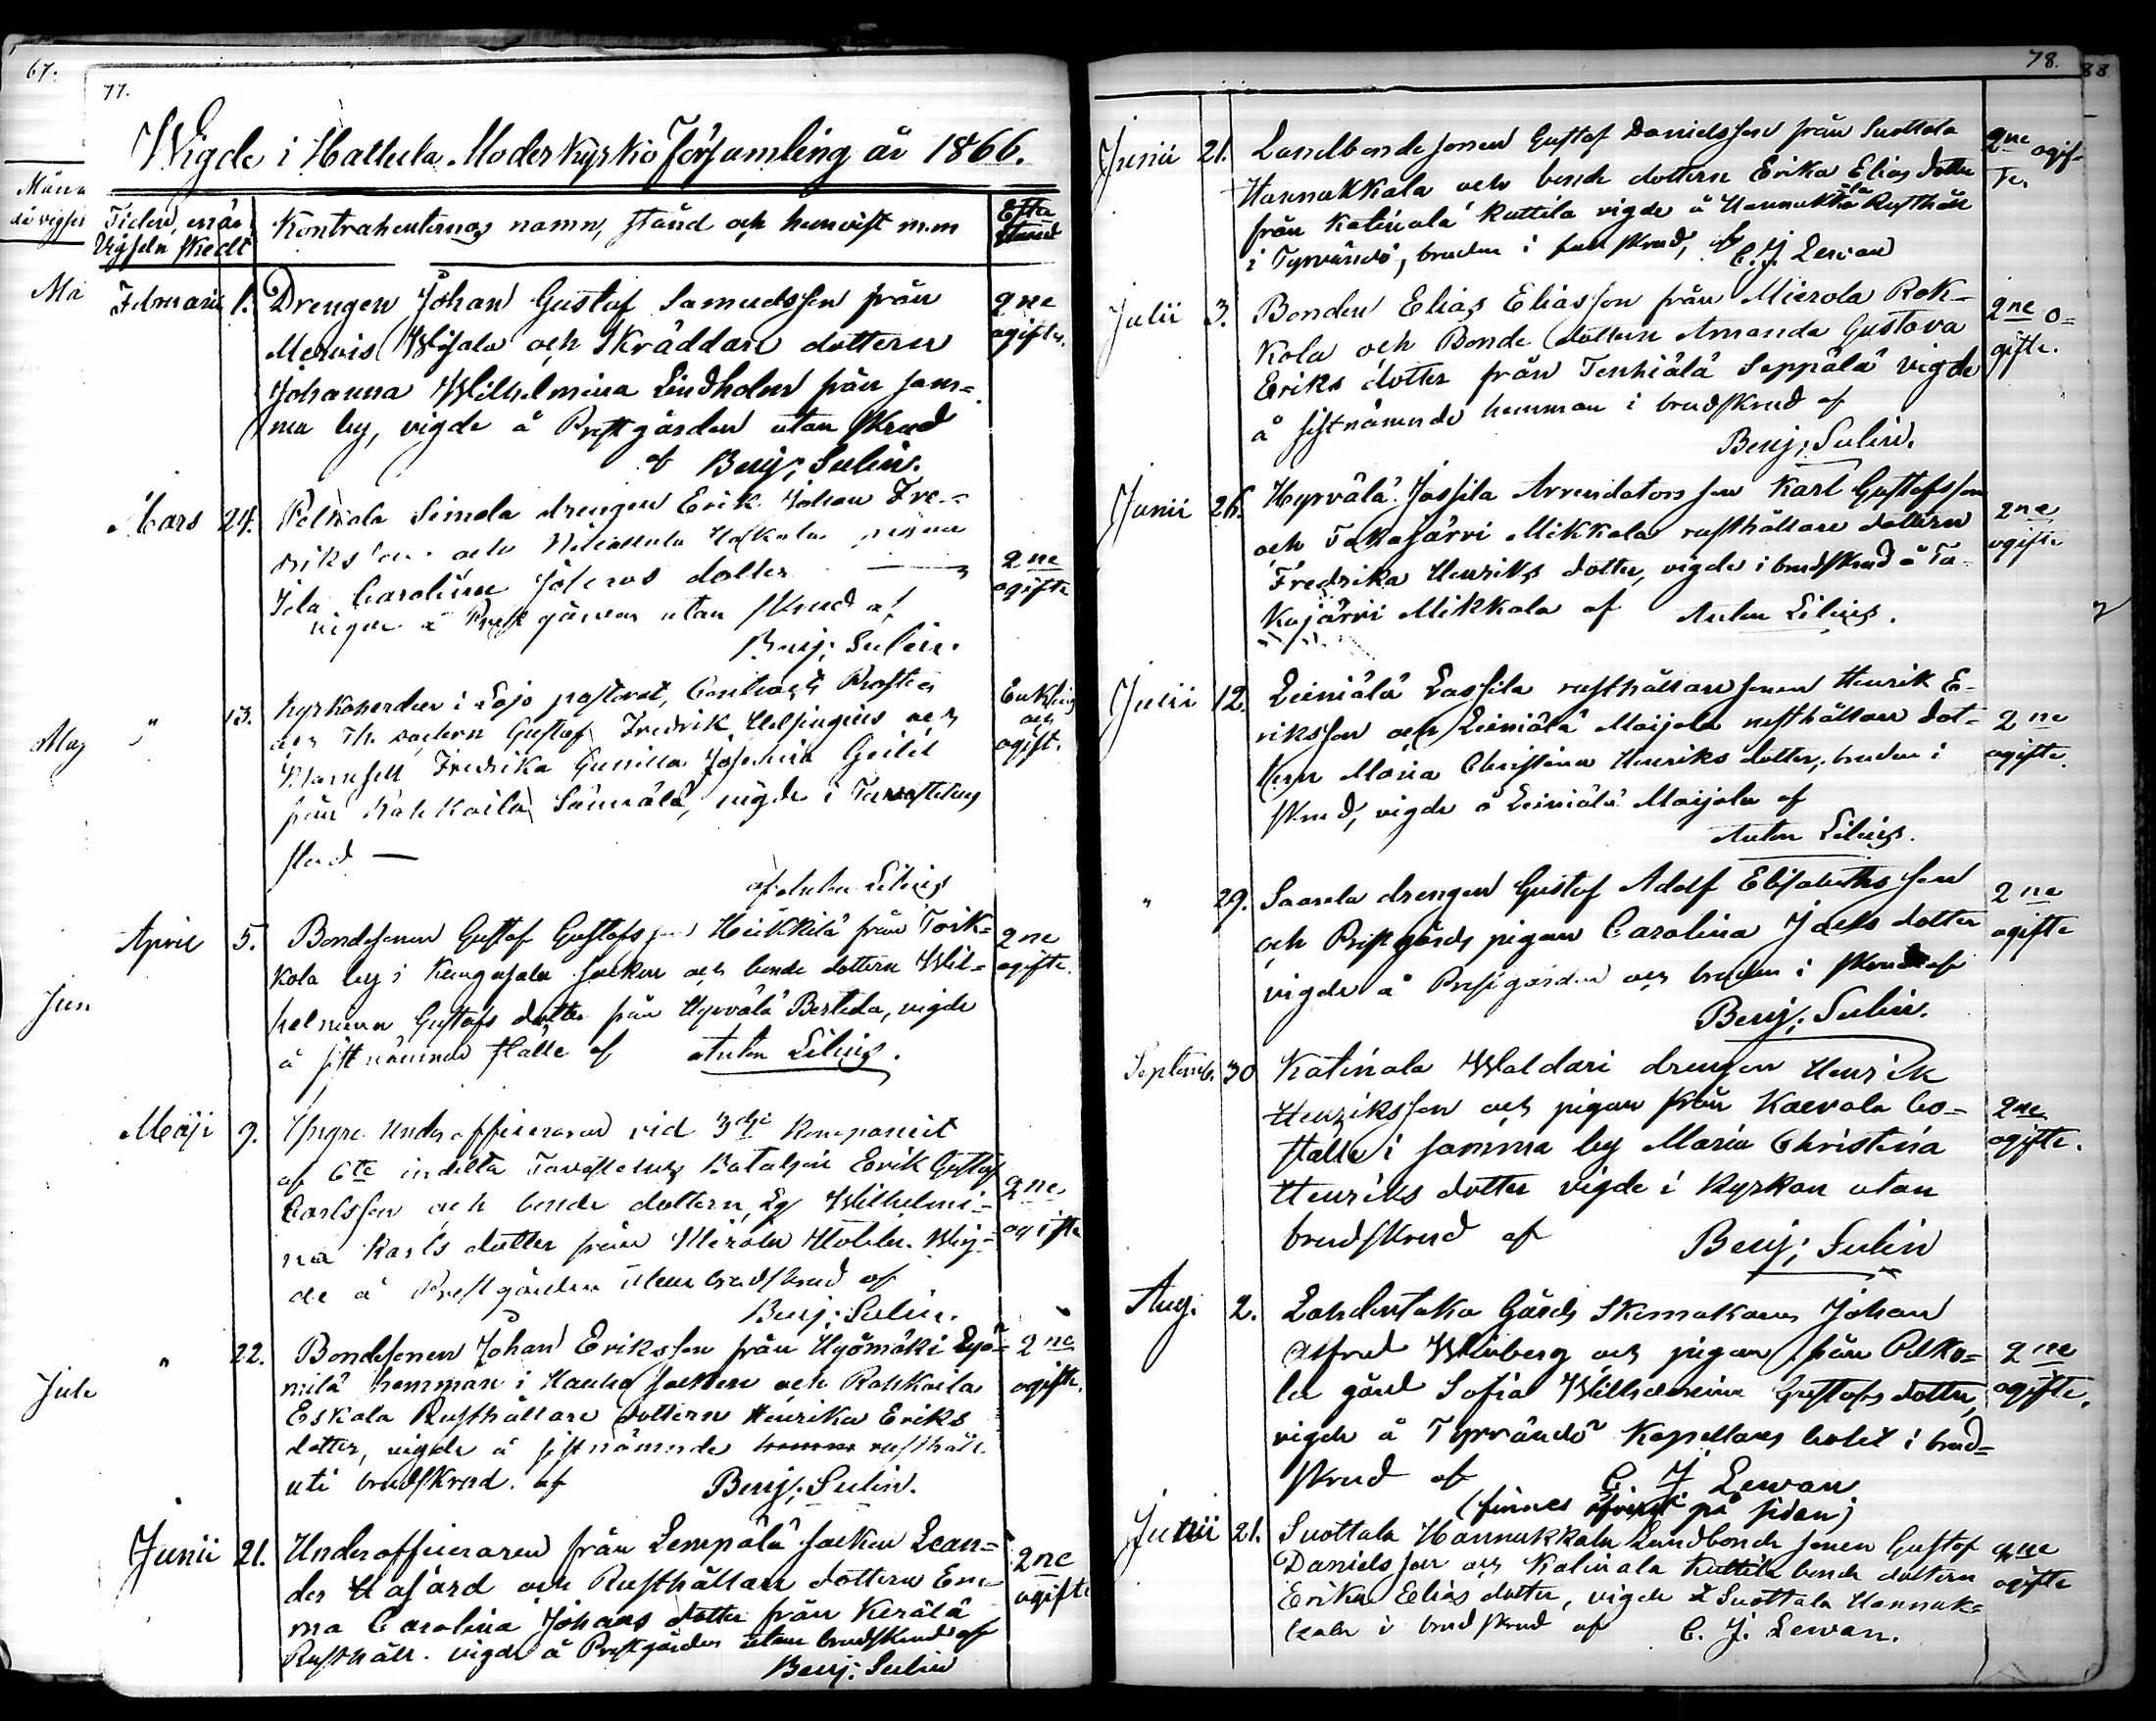 67.
77.
Wigde i Hattula Moderkyrko Församling år 1866.
Tiden, när Vigseln skedt
Kontrahenternas namn, stånd och hemvist m.m
Februarii 1. Drengen Johan Gustaf Samuelsson från
Mervis Wisala och Skräddare dottern
Johanna Wilhelmina Lindholm från sam=
ma by, vigde å Prestgården utan skrud
af Benj: Sulin.
2ne
ogifte.
Mars 24. Pelkola Simola drengen Erik Johan Fre-
driksson och pigan
Ida Carolina dotter
vigde å Prestgården utan skrud af
Benj: Sulin.
2ne
ogifte
" 13. Kyrkoherden i Lojo pastorat, Contracts Prosten
och Th. doctorn Gustaf Fredrik Helsingius och
Mamsell Fredrika Gunilla Josefina Geitel
från Rahkoila Sännälä, vigde i Tavastehus
stad —
af Anton Lilius
Enkling
och
ogift.
April 5. Bondesonen Gustaf Gustafsson Heikkilä från Toik=
kola by i Kangasala socken och bonde dottern Wil=
helmina Gustafs dotter från Hyrvälä Bertila, vigde
å sistnämnde ställe af Anton Lilius.
2ne
ogifte.
Maji 9. Yngre Underofficeraren vid 3dje Kompaniet
af 6te indelta Tavastehus Bataljon Erik Gustaf
Carlsson och bonde dottern Wilhelmi=
na Karls dotter från Mirola Wig=
de å Prestgården utan brudskrud af
Benj: Sulin.
2ne
ogifte
" 22. Bondesonen Johan Eriksson från Hyömäki Lyö=
milä hemman i Hauho socken och Rahkoila
Eskola Rusthållare dottern Henrika Eriks
dotter, vigde å sistnämnde rusthåll
uti brudskrud af Benj: Sulin.
2ne
ogifte.
Junii 21. Underofficeraren från Lempälä socken Lean=
der Hasard och Rusthållare dottern Em=
ma Carolina Johans dotter från Kerälä
Rusthåll. vigde å Prestgården utan brudskrud af
Benj: Sulin
2ne
ogifte
78.
88
Junii 21. Landbondesonen Gustaf Danielsson från Suottala
Hannukkala och bonde dottern Erika Elias dotter
från Katinala Kuttila vigde å Hannukkala Rusthåll
i Tyrväntö, bruden i full skrud, af
C. J. Lewan
2ne ogif=
te.
Julii 3. Bonden Elias Eliasson från Mierola Rok=
kola och Bonde dottern Amanda Gustava
Eriks dotter från Tenhiälä Seppälä vigde
å sistnämnde hemman i brudskrud af
Benj: Sulin.
2ne o=
gifte.
Junii 26. Hyrvälä Jassila Arrendators son Karl Gustafsson
och Takajärvi Mikkola rusthållare dottern
Fredrika Henriks dotter, vigde i brudskrud å Ta-
kajärvi Mikkola af Anton Lilius.
2ne
ogifte
Julii 12. Leiniälä Lassila rusthållare sonen Henrik E-
riksson och Leiniälä Maijala rusthållare dot-
tern Maria Christina Henriks dotter, bruden i
skrud, vigde å Leiniälä Maijala af
Anton Lilius.
2ne
ogifte.
" 29. Saarela drengen Gustaf Adolf Elisabethsson
och Prestgårds pigan Carolina Jacks dotter
vigde å Prestgården och bruden i skrud af
Benj: Sulin.
2ne
ogifte
Septemb. 30 Katinala Waldari drengen Henrik
Henriksson och pigan från Kaervala bo=
ställe i samma by Maria Christina
Henriks dotter vigde i Kyrkan utan
brudskrud af Benj: Sulin
2ne
ogifte.
Aug. 2. Lahdentaka Gårds Skomakaren Johan
Alfred Winberg och pigan från Pelko=
la gård Sofia Wilhelmina Gustafs dotter,
vigde å Tyrväntö Kapellans bolet i brud=
skrud af C J Lewan
2ne
ogifte.
(finnes på sidan)
Junii 21. Suottala Hannukkala Landbonde sonen Gustaf
Danielsson och Katinala Kuttila bonde dottern
Erika Elias dotter, vigde å Suottala Hannuk=
kala i brudskrud af C. J. Lewan.
2ne
ogifte